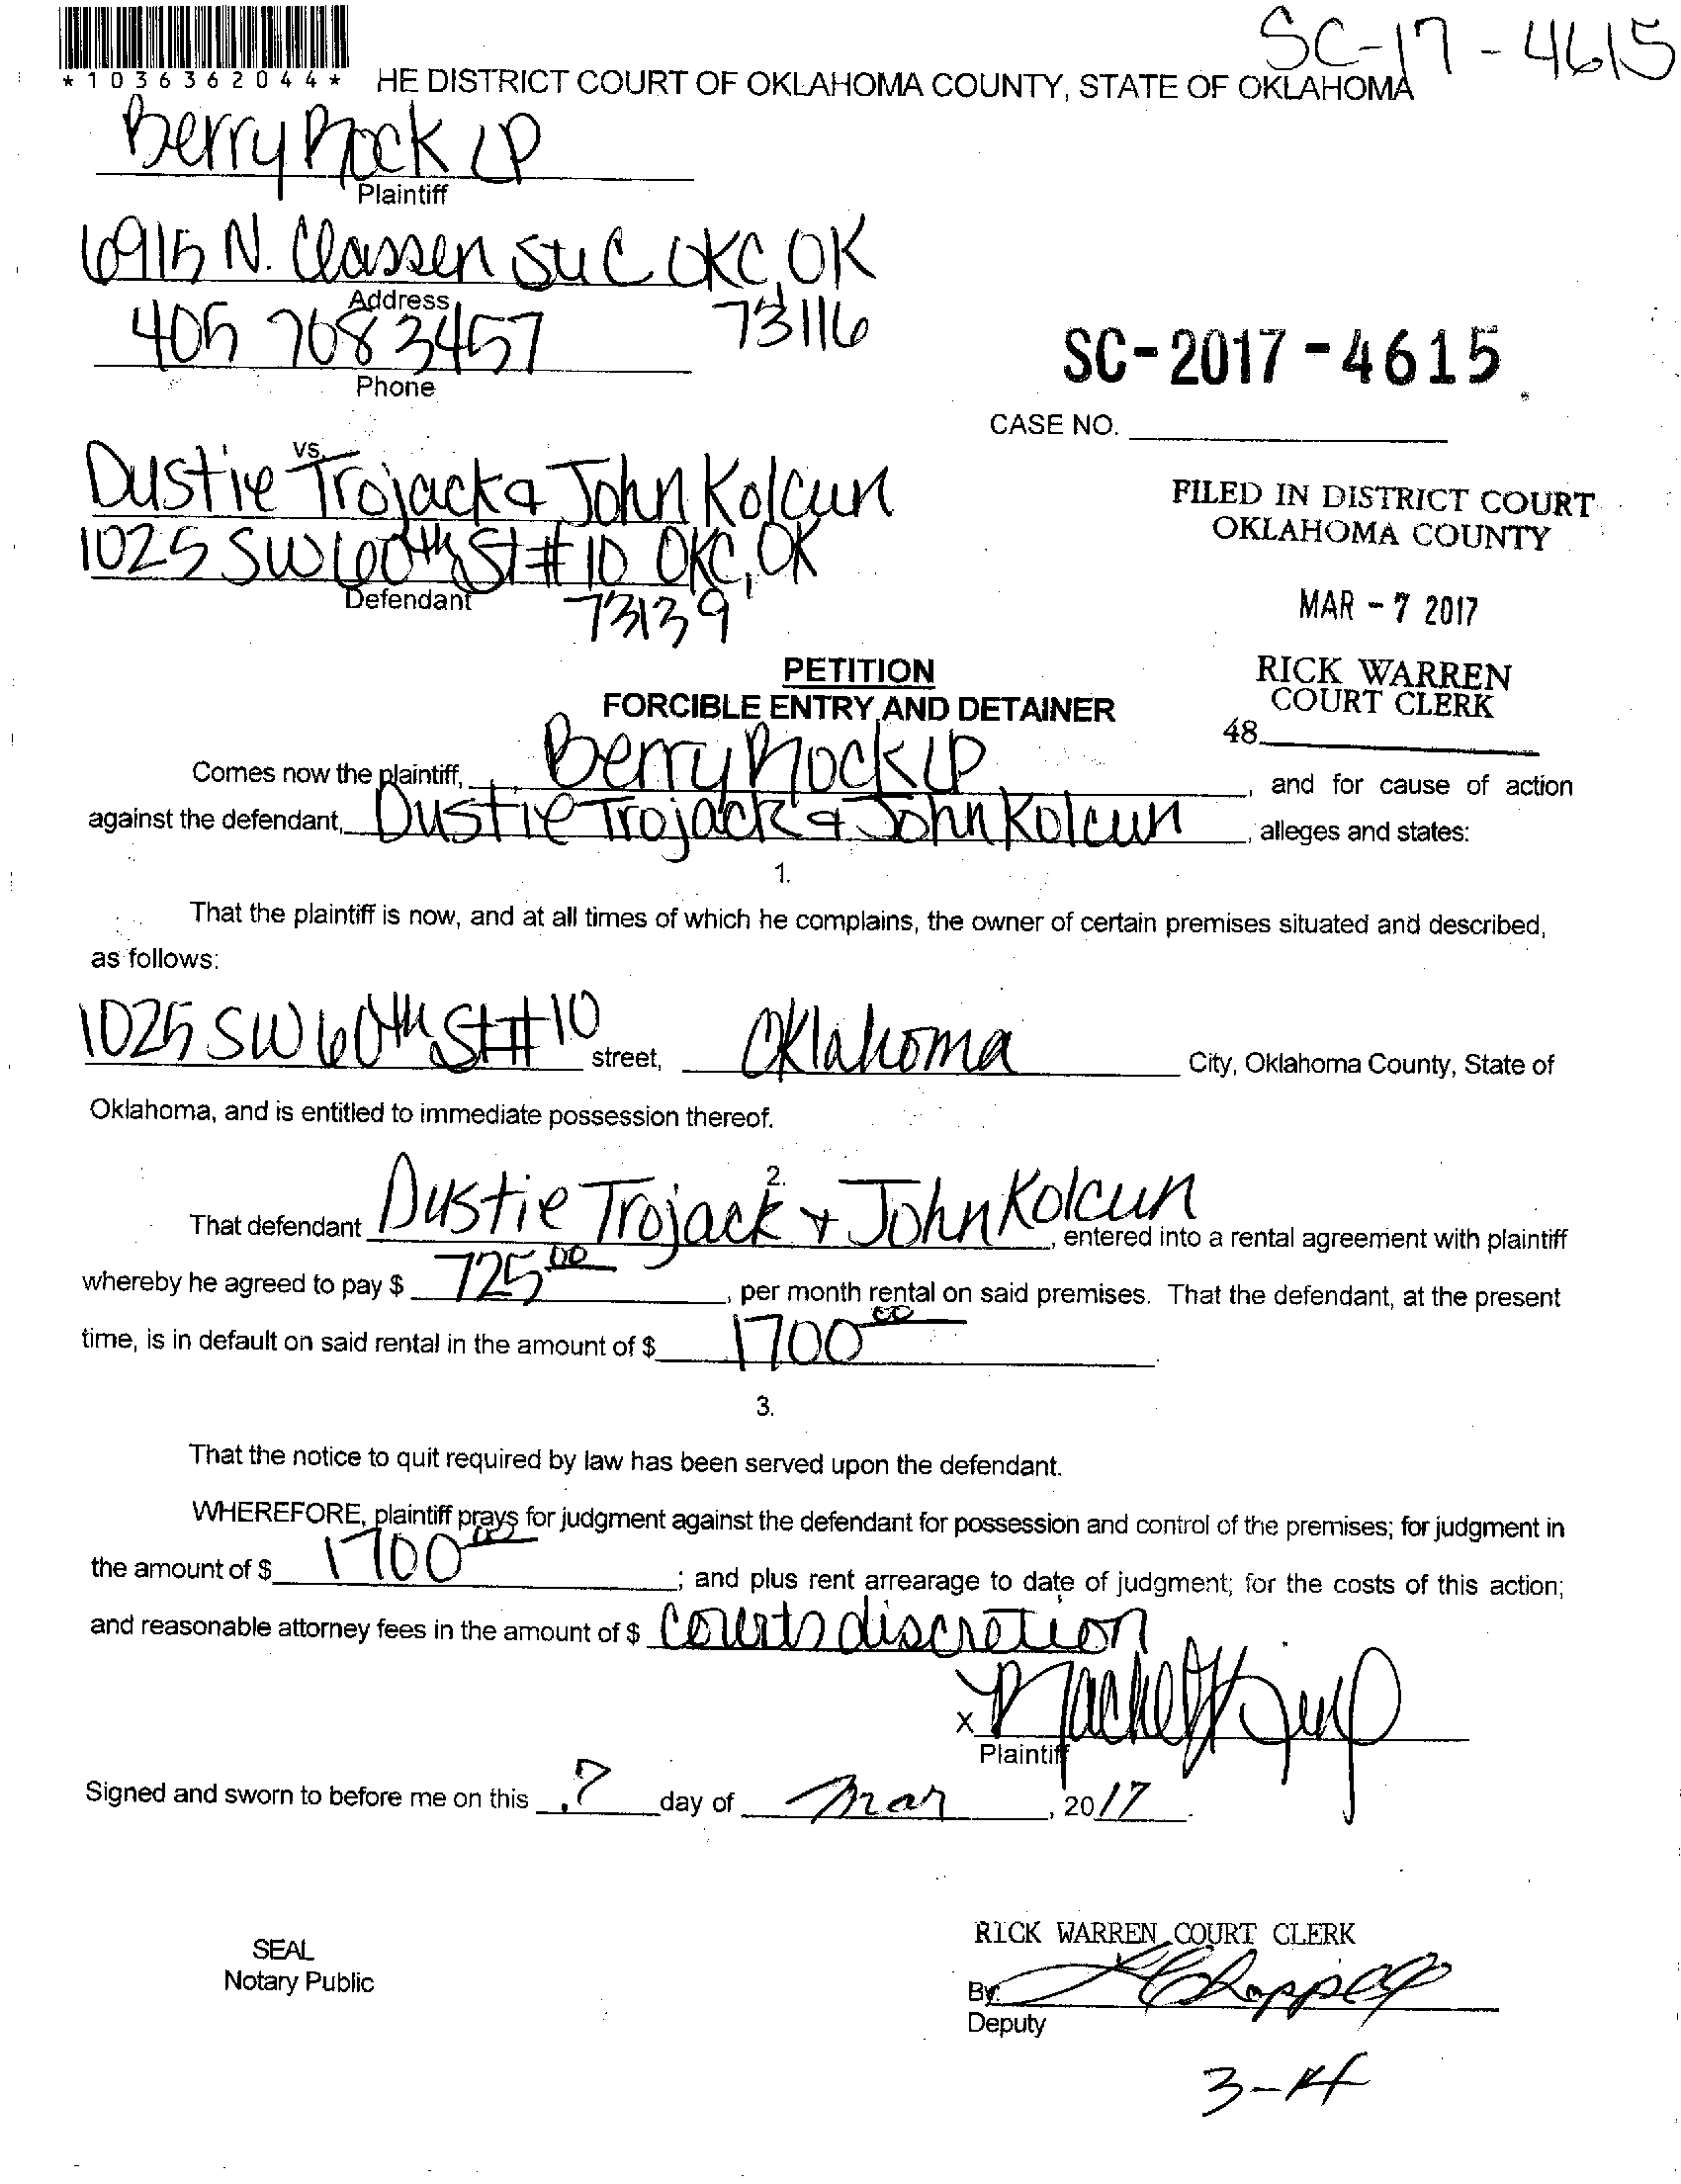 SC-17-4615
*1036362044*
HE DISTRICT COURT OF OKLAHOMA COUNTY, STATE OF OKLAHOMA
Berry Rock LP
Plaintiff
6915 N. Classen Ste C OKC, OK
Address
405 708 3457 73116
Phone
SC-2017-4615
CASE NO.
vs.
Dustie Trojack & John Kolcun
1025 SW 60th St # 10 OKC, OK
Defendant
73139
FILED IN DISTRICT COURT
OKLAHOMA COUNTY
MAR - 7 2017
RICK WARREN
COURT CLERK
48
PETITION
FORCIBLE ENTRY AND DETAINER
Comes now the plaintiff, Berry Rock LP, and for cause of action
against the defendant, Dustie Trojack & John Kolcun, alleges and states:
1.
That the plaintiff is now, and at all times of which he complains, the owner of certain premises situated and described,
as follows:
1025 SW 60th St # 10 street, Oklahoma City, Oklahoma County, State of
Oklahoma, and is entitled to immediate possession thereof.
2.
That defendant Dustie Trojack + John Kolcun, entered into a rental agreement with plaintiff
whereby he agreed to pay $ 725 00, per month rental on said premises. That the defendant, at the present
time, is in default on said rental in the amount of $ 1700 00.
3.
That the notice to quit required by law has been served upon the defendant.
WHEREFORE, plaintiff prays for judgment against the defendant for possession and control of the premises; for judgment in
the amount of $ 1700 00; and plus rent arrearage to date of judgment; for the costs of this action;
and reasonable attorney fees in the amount of $ courts discretion
x Rachel
Plaintiff
Signed and sworn to before me on this 7 day of Mar, 2017.
SEAL
Notary Public
RICK WARREN COURT CLERK
By:
Deputy
3-14